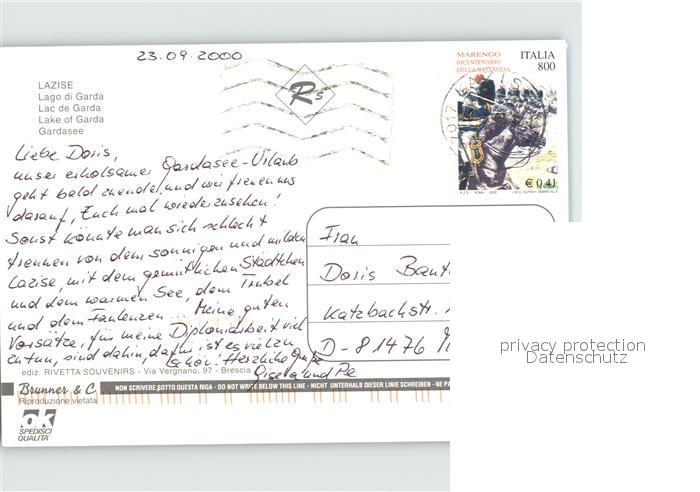 23.09.2000
MARENGO
BICENTENARIO
DELLA BATTAGLIA
ITALIA
800
€ 0,41
LAZISE
Lago di Garda
Lac de Garda
Lake of Garda
Gardasee
Liebe Doris,
unser erholsamer Gardasee-Urlaub
geht bald zuende, und wir freuen uns
darauf, Euch mal wiederzusehen!
Sonst könnte man sich schlecht
trennen von dem sonnigen und milden
Lazise, mit dem gemütlichen Städtchen
und dem warmen See, dem Trubel
und dem Faulenzen... Meine guten
Vorsätze, für meine Diplomarbeit viel
zu tun, sind dahin, dafür ist es viel zu
schön! Herzliche Grüße
Gisela und
Frau
Doris
Katzbachstr.
D-81476
ediz. RIVETTA SOUVENIRS - Via Vergnano, 97 - Brescia
Brunner & C
Riproduzione vietata
NON SCRIVERE SOTTO QUESTA RIGA - DO NOT WRITE BELOW THIS LINE - NICHT UNTERHALB DIESER LINIE SCHREIBEN - NE PA
ok
SPEDISCI
QUALITÀ
privacy protection
Datenschutz